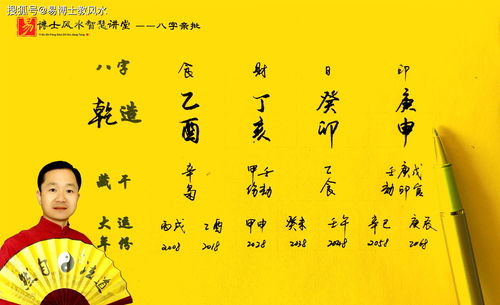 搜狐号@易博士救风水
易博士风水智慧讲堂 ——八字亲批
八字 食 財 日 印
乾造 乙 丁 癸 庚
酉 亥 卯 申
藏干 辛 甲壬 乙 壬庚戊
枭 伤劫 食 劫印官
大运 丙戌 乙酉 甲申 癸未 壬午 辛巳 庚辰
年份 2008 2018 2028 2038 2048 2058 2068
然自法道